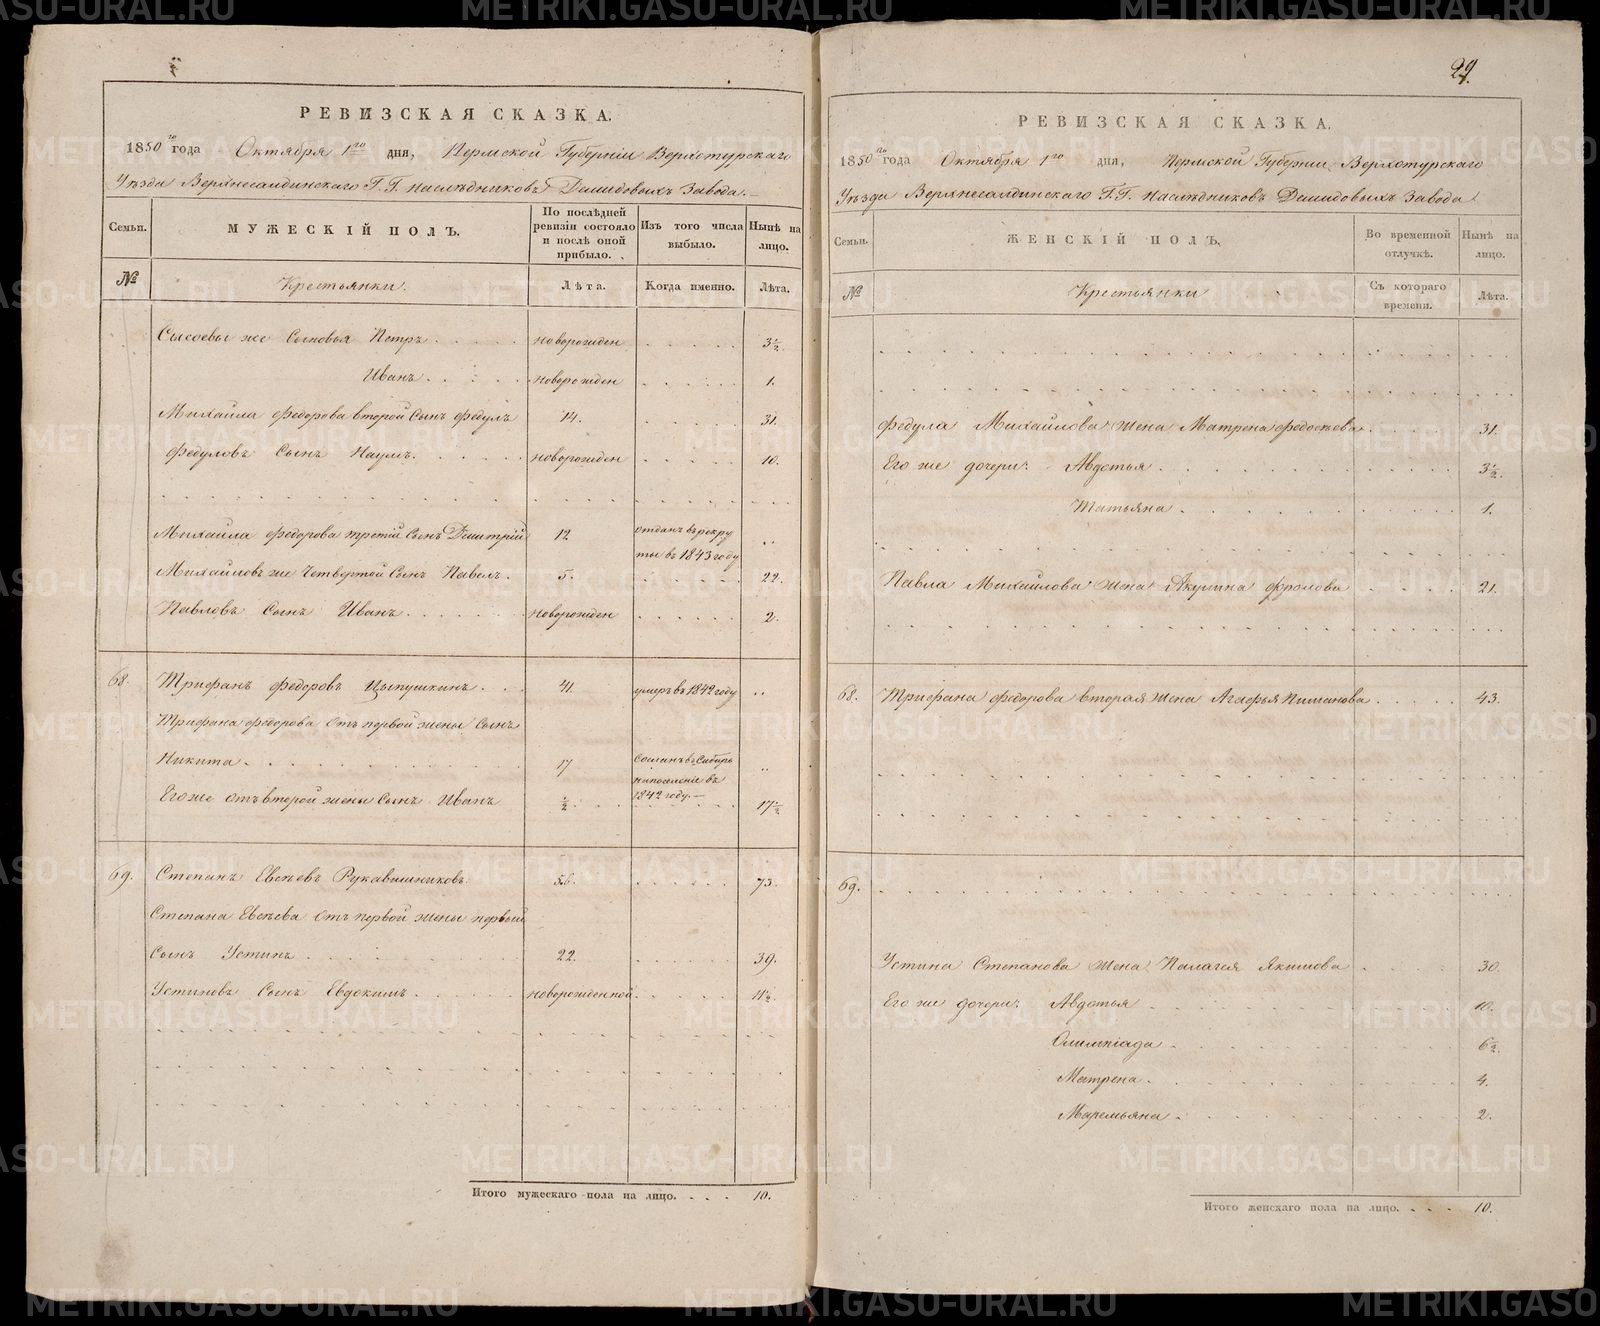 29.
РЕВИЗСКАЯ СКАЗКА.
1850го года Октября 1го дня, Пермской Губерніи Верхотурскаго
Уѣзда Верхнесалдинскаго Г.Г. наслѣдниковъ Демидовыхъ Завода.
Семьи.
МУЖЕСКІЙ ПОЛЪ.
По послѣдней ревизіи состояло и послѣ оной прибыло.
Изъ того числа выбыло.
Нынѣ на лицо.
№
Крестьянки.
Лѣта.
Когда именно.
Лѣта.
Сысоевы же Сыновья Петръ новорожден 3½.
Иванъ новорожден 1.
Михайла Федорова второй Сынъ Федулъ 14. 31.
Федуловъ Сынъ Наумъ новорожден 10.
Михайла Федорова третій Сынъ Дмитрій 12 отданъ въ рекруты въ 1843 году
Михайловъ же Четвертой Сынъ Павелъ. 5. 22.
Павловъ Сынъ Иванъ новорожден 2.
68. Трифанъ Федоровъ Цыпушкинъ 41. умеръ въ 1842 году
Трифана Федорова отъ первой жены Сынъ
Никита 17 Сосланъ въ Сибирь на поселеніе въ 1842 году.
Его же отъ второй жены Сынъ Иванъ ½ 17½
69. Степанъ Евсѣевъ Рукавишниковъ 56. 73.
Степана Евсѣева отъ первой жены первый
Сынъ Устинъ 22. 39.
Устиновъ Сынъ Евдокимъ новорожденной 11½.
Итого мужескаго пола на лицо. 10.
РЕВИЗСКАЯ СКАЗКА.
1850го года Октября 1го дня, Пермской Губерніи Верхотурскаго
Уѣзда Верхнесалдинскаго Г.Г. Наслѣдниковъ Демидовыхъ Завода.
Семьи.
ЖЕНСКІЙ ПОЛЪ.
Во временной отлучкѣ.
Нынѣ на лицо.
№
Крестьянки
Съ котораго времени.
Лѣта.
Федула Михайлова жена Матрена Федосѣева 31.
Его же дочери: Авдотья 3½.
Татьяна 1.
Павла Михайлова жена Акулина Фролова 21.
68. Трифана Федорова вторая жена Агафья Пиманова 43.
69.
Устина Степанова жена Палагея Якимова 30.
Его же дочери: Авдотья 10.
Олимпіада 6½.
Матрена 4.
Маремьяна 2.
Итого женскаго пола на лицо. 10.
METRIKI.GASO-URAL.RU